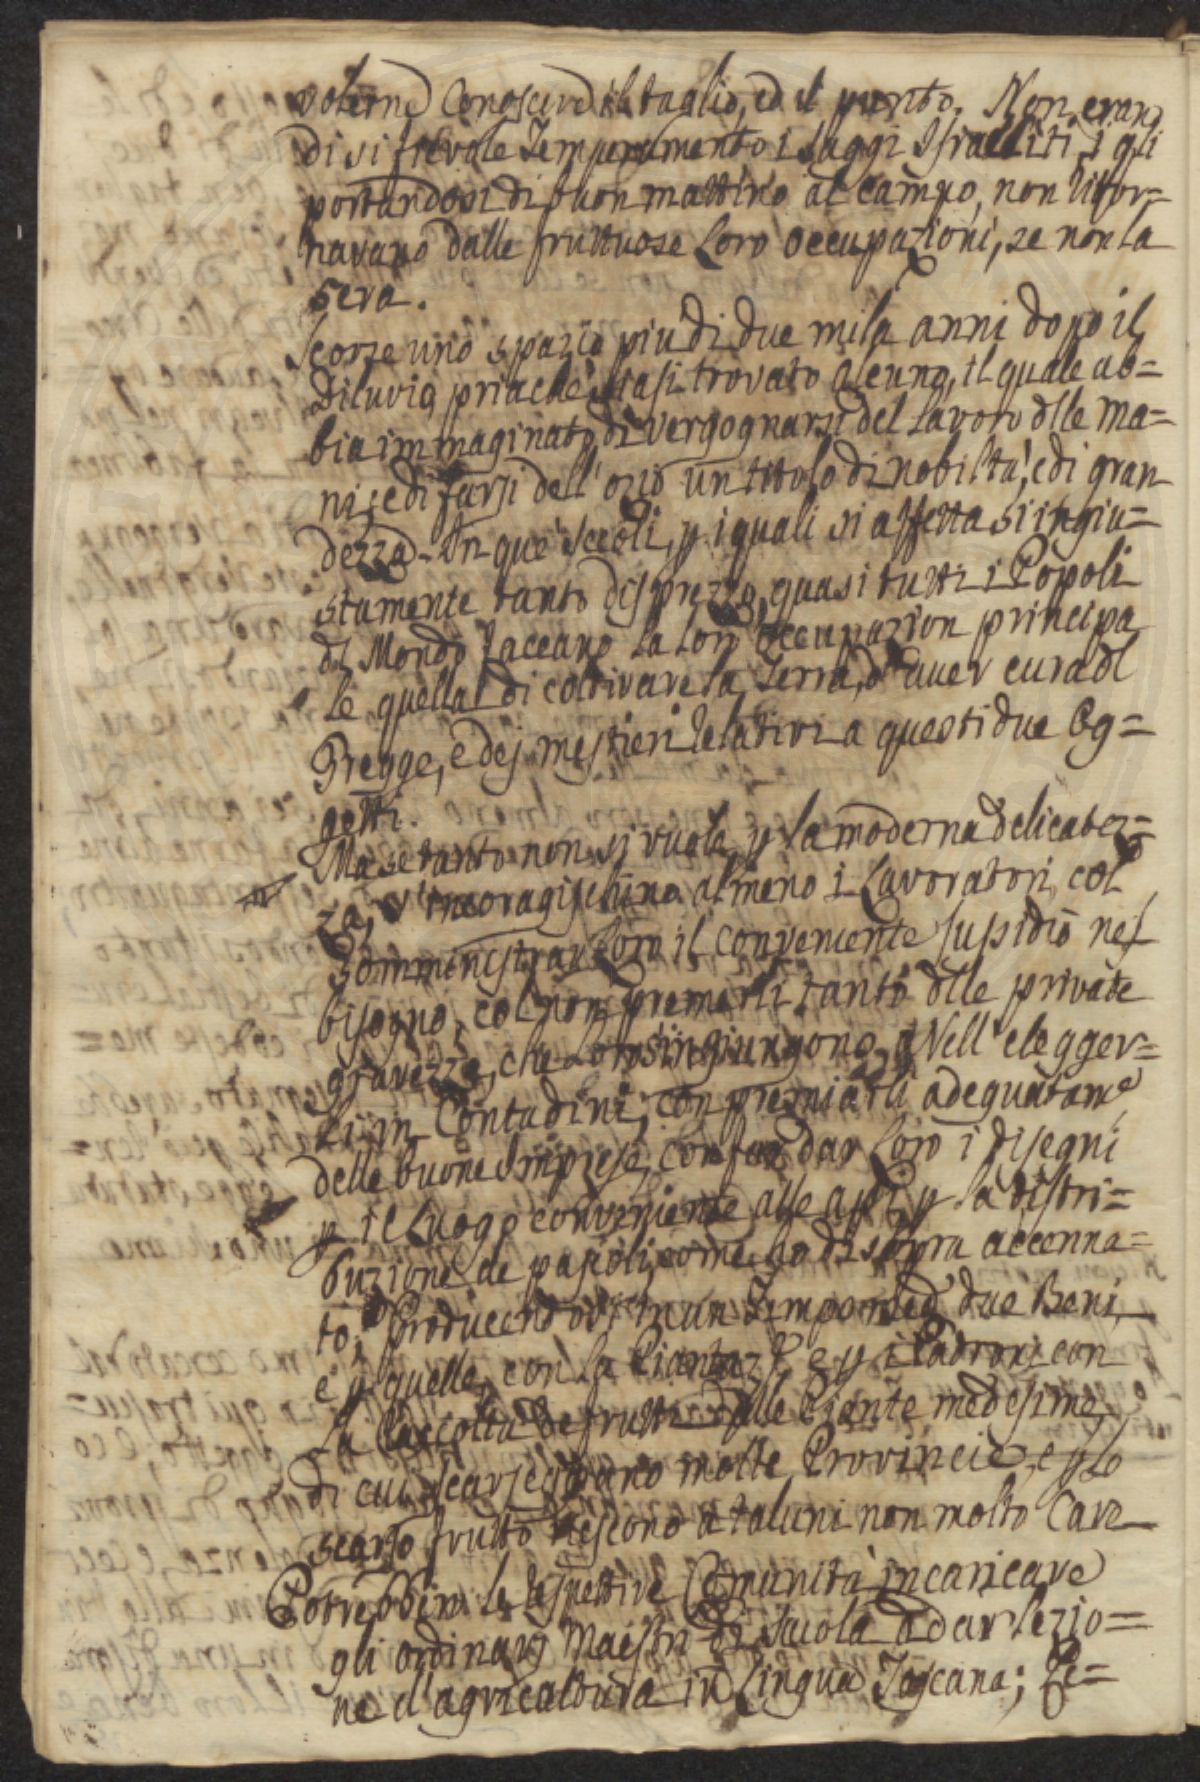 volerne conoscere il taglio, ed il punto. Non eran
di si frevole Temperamento i saggi Israeliti, i qli
portandosi di buon mattino al campo, non litor=
navano dalle fruttuose Loro occupazioni, se non la
sera.
Scorse uno spazio più di due mila anni dopo il
Diluvio, priache siasi trovato alcuno, il quale ab=
bia immaginato di vergognarsi del Lavoro dlle ma=
ni; e di farsi dell'ozio un titolo di nobiltà, e di gran
dezza. In que' secoli, p i quali si affetta si ingiu=
stamente tanto disprezzo, quasi tutti i Popoli
dl Mondo faceano la loro occupazion principa
le quella di coltivare la Terra, d'aver cura dl
Gregge, e dej mestieri relativi a questi due Og=
getti.
Ma se tanto non si vuole p la moderna delicatez=
za, s'incoragischino almeno i Lavoratori, col
somministrar loro il conveniente sussidio nel
bisogno, col non premerli tanto dlle private
gravezze, che Loro singiungono, Nell'elegger=
li in Contadini, con premiarli adeguatame
delle buone Imprese, con far dar Loro i disegni
p il Luogo conveniente alle api, p la distri=
buzione de papoli, come ho di sopra accenna=
to; Producendosi in un Tempo due Beni,
e p quelle, con la Pianta, e p i Padroni con
la Raccolta de frutti dlle Piante medesime,
di cui scarseggiano molte Provincie, e p lo
scarso frutto riescono a taluni non molto Care
Potrebbero le respettive Comunità incaricare
gli ordinarj Maestri di scuola a dar lezio=
ne d'agricoltura in Lingua Toscana; Fi=